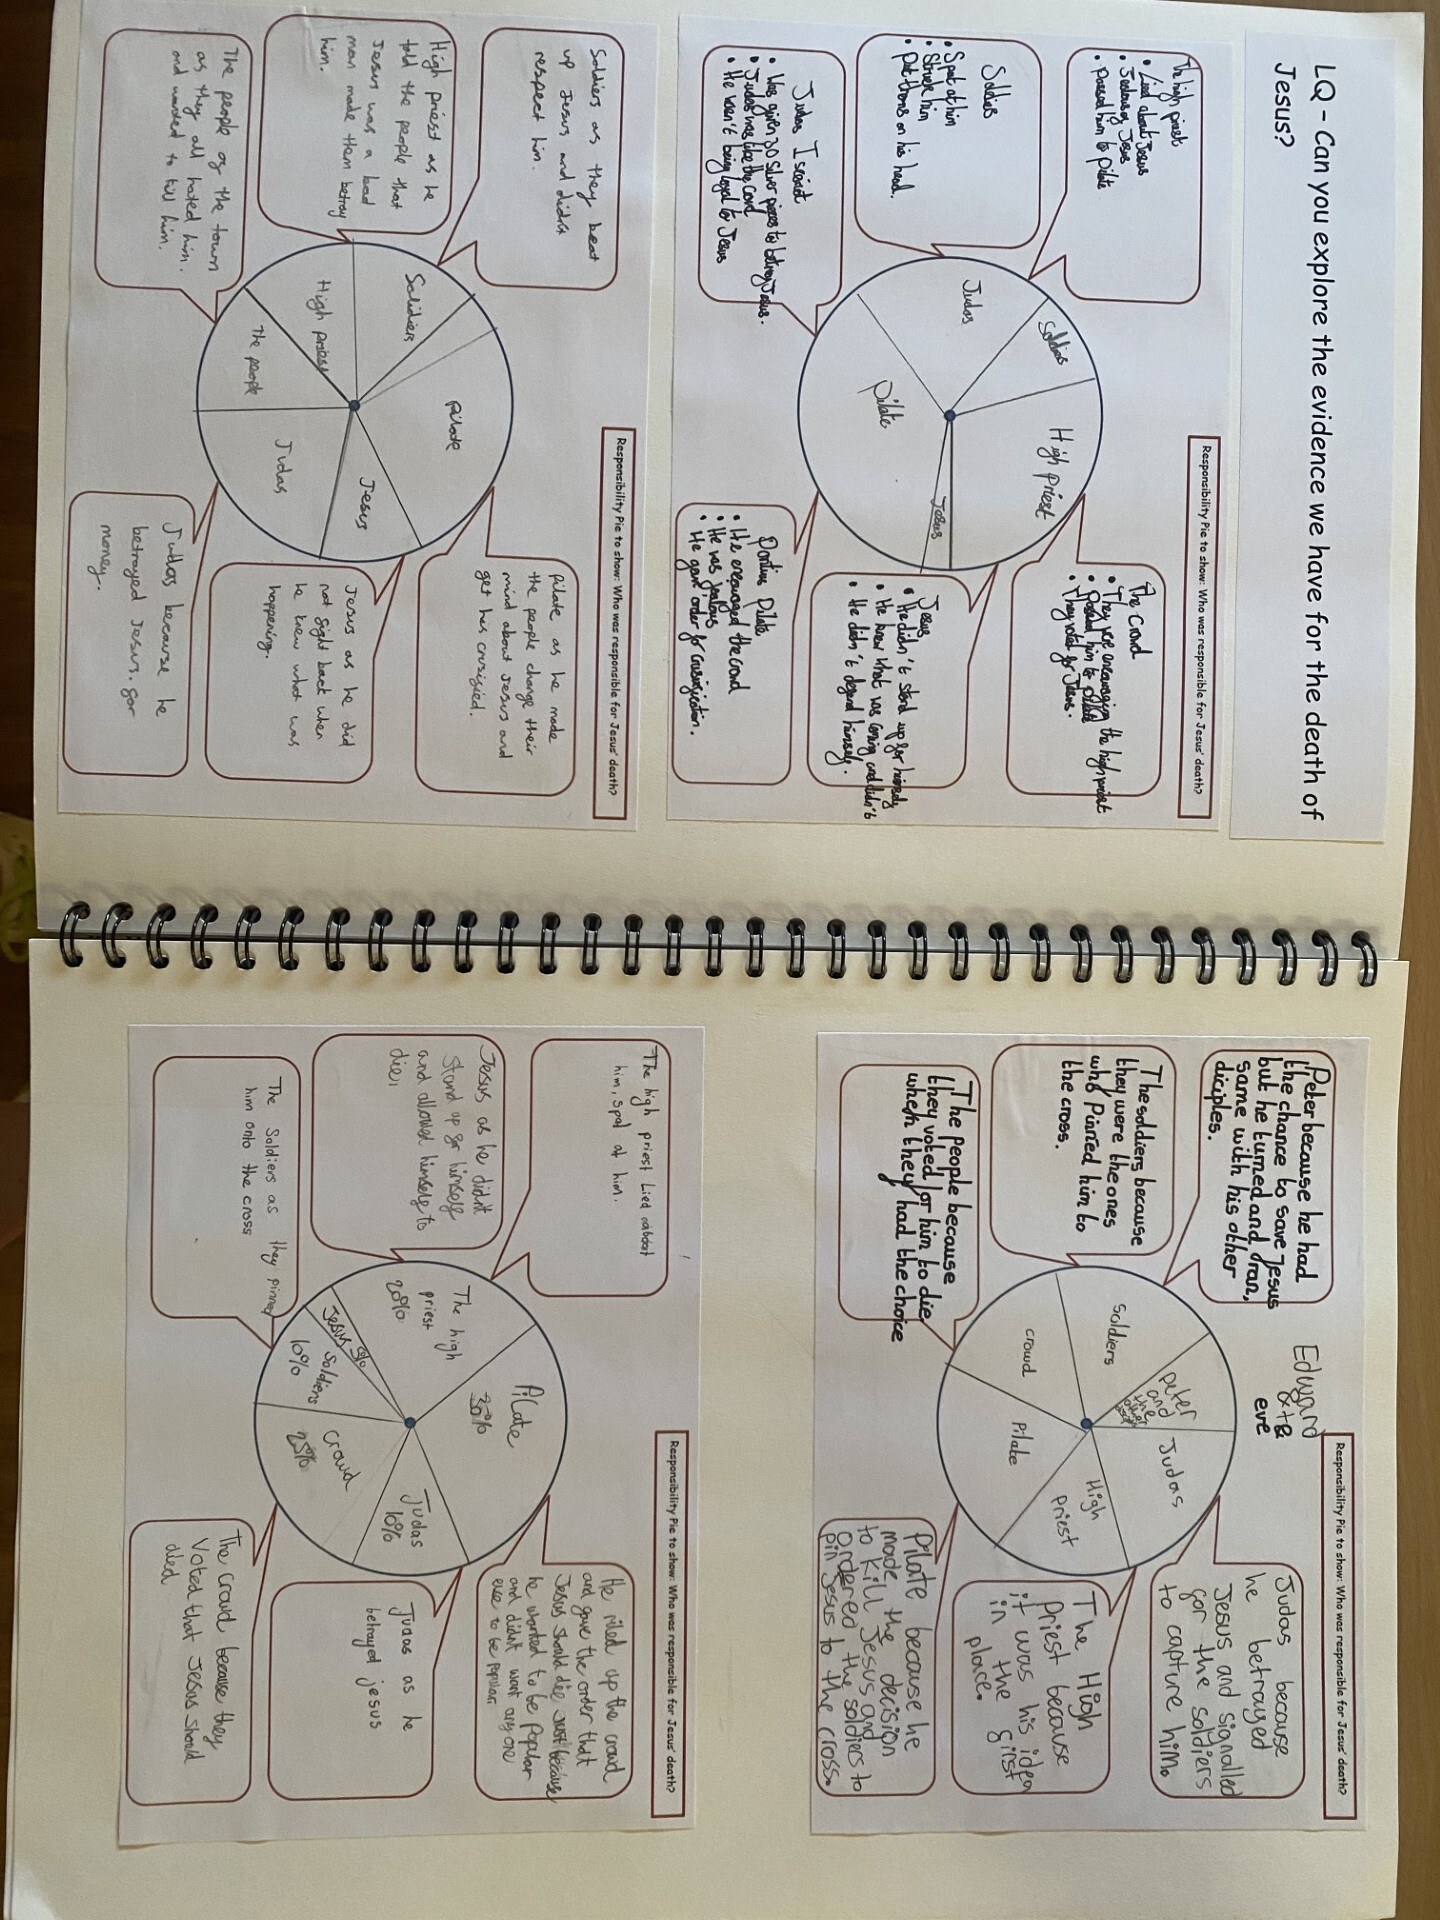 LQ - Can you explore the evidence we have for the death of
Jesus?
Responsibility Pie to show: Who was responsible for Jesus' death?
The high priest
• Lied about Jesus
• Jealous of Jesus
• Passed him to Pilate
Soldiers
• Spat at him
• Struck him
• Put thorns on his head.
Judas Iscariot
• Was given 30 silver pieces to betray Jesus.
• Judas was like the Crowd
• He wasn't being loyal to Jesus
Judas
Soldiers
High priest
Pilate
Jesus
The Crowd
• They were encouraging the high priest
• Passed him to Pilate
• They voted for Jesus.
Jesus
• He didn't stand up for himself
• He knew what was coming and didn't
• He didn't defend himself.
Pontius Pilate
• He encouraged the crowd
• He was jealous
• He gave order for crusification.
Responsibility Pie to show: Who was responsible for Jesus' death?
Soldiers as they beat
up Jesus and didn't
respect him.
High priest as he
told the people that
Jesus was a bad
man made them betray
him.
The people of the town
as they all hated him.
and wanted to kill him.
Soldiers
High priest
The people
Judas
Jesus
Pilate
Pilate as he made
the people change their
mind about Jesus and
get hes crusified.
Jesus as he did
not fight back when
he knew what was
happening.
Judas because he
betrayed Jesus. for
money.
Responsibility Pie to show: Who was responsible for Jesus' death?
Edward
eve
Peter because he had
the chance to save Jesus
but he turned and ran,
same with his other
diciples.
The soldiers because
they were the ones
who Pinned him to
the cross.
The people because
they voted for him to die
when they had the choice
Peter
and
the
other
Soldiers
crowd
Pilate
High
Priest
Judas
Judas because
he betrayed
Jesus and signalled
for the soldiers
to capture him.
The High
Priest because
it was his idea
in the first
place.
Pilate because he
made the decision
to kill Jesus and
ordered the soldiers to
pin Jesus to the cross.
Responsibility Pie to show: Who was responsible for Jesus' death?
The high priest Lied about
him, spat at him.
Jesus as he didnt
stand up for himself
and allowed himself to
die,
The Soldiers as they pinned
him onto the cross
The high
priest
20%
Jesus 5%
Soldiers
10%
Crowd
25%
Judas
10%
Pilate
30%
He riled up the crowd
and gave the order that
Jesus should die, just because
he wanted to be Popular
and didnt want any one
else to be popular.
Judas as he
betrayed jesus
The crowd because they
Voted that Jesus should
died